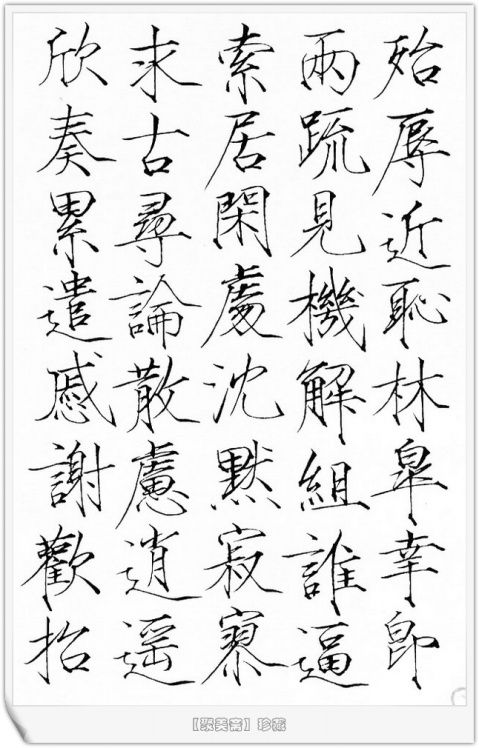 殆辱近恥林皋幸即
兩疏見機解組誰逼
索居閑處沈默寂寥
求古尋論散慮逍遥
欣奏累遣慼謝歡招
【聚美斋】珍藏